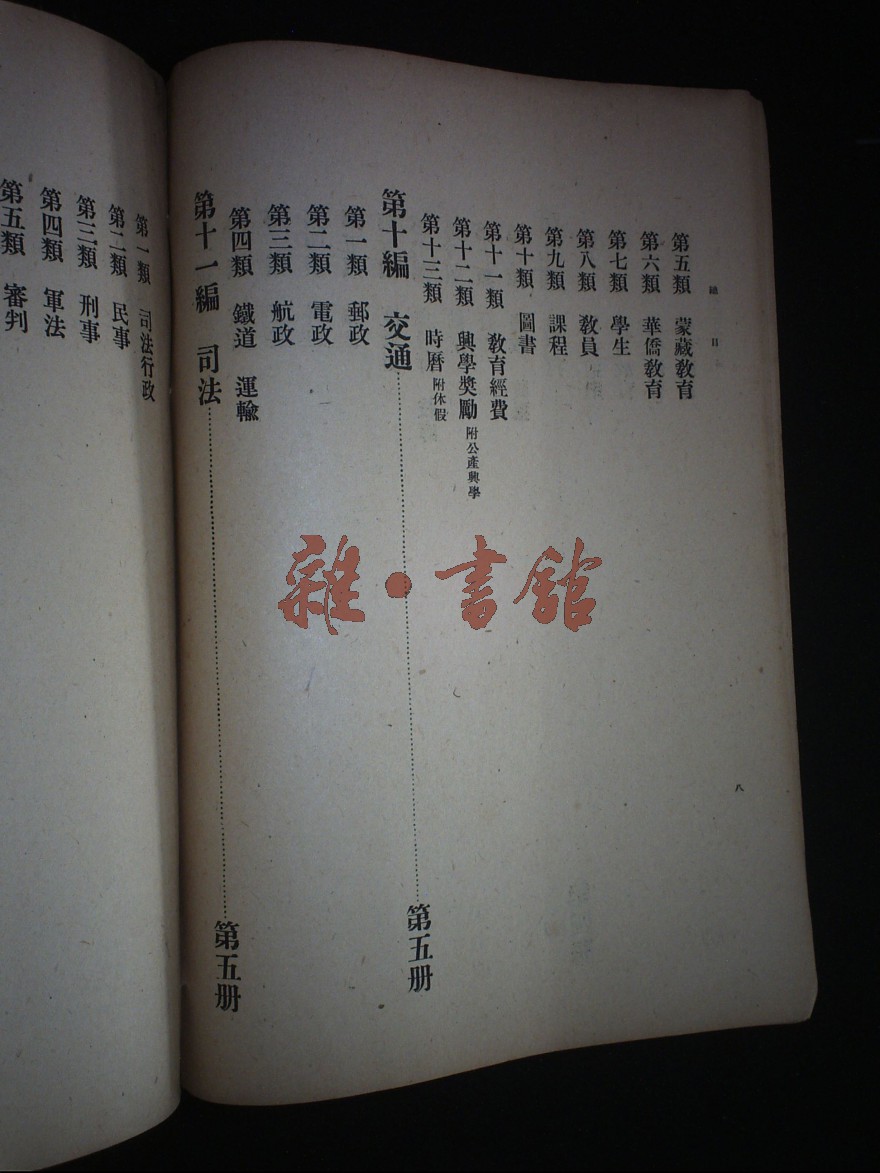 總目
第五類 蒙藏敎育
第六類 華僑敎育
第七類 學生
第八類 敎員
第九類 課程
第十類 圖書
第十一類 敎育經費
第十二類 興學獎勵 附公產興學
第十三類 時曆 附休假
第十編 交通……第五册
第一類 郵政
第二類 電政
第三類 航政
第四類 鐵道 運輸
第十一編 司法……第五册
八
第一類 司法行政
第二類 民事
第三類 刑事
第四類 軍法
第五類 審判
雜·書館